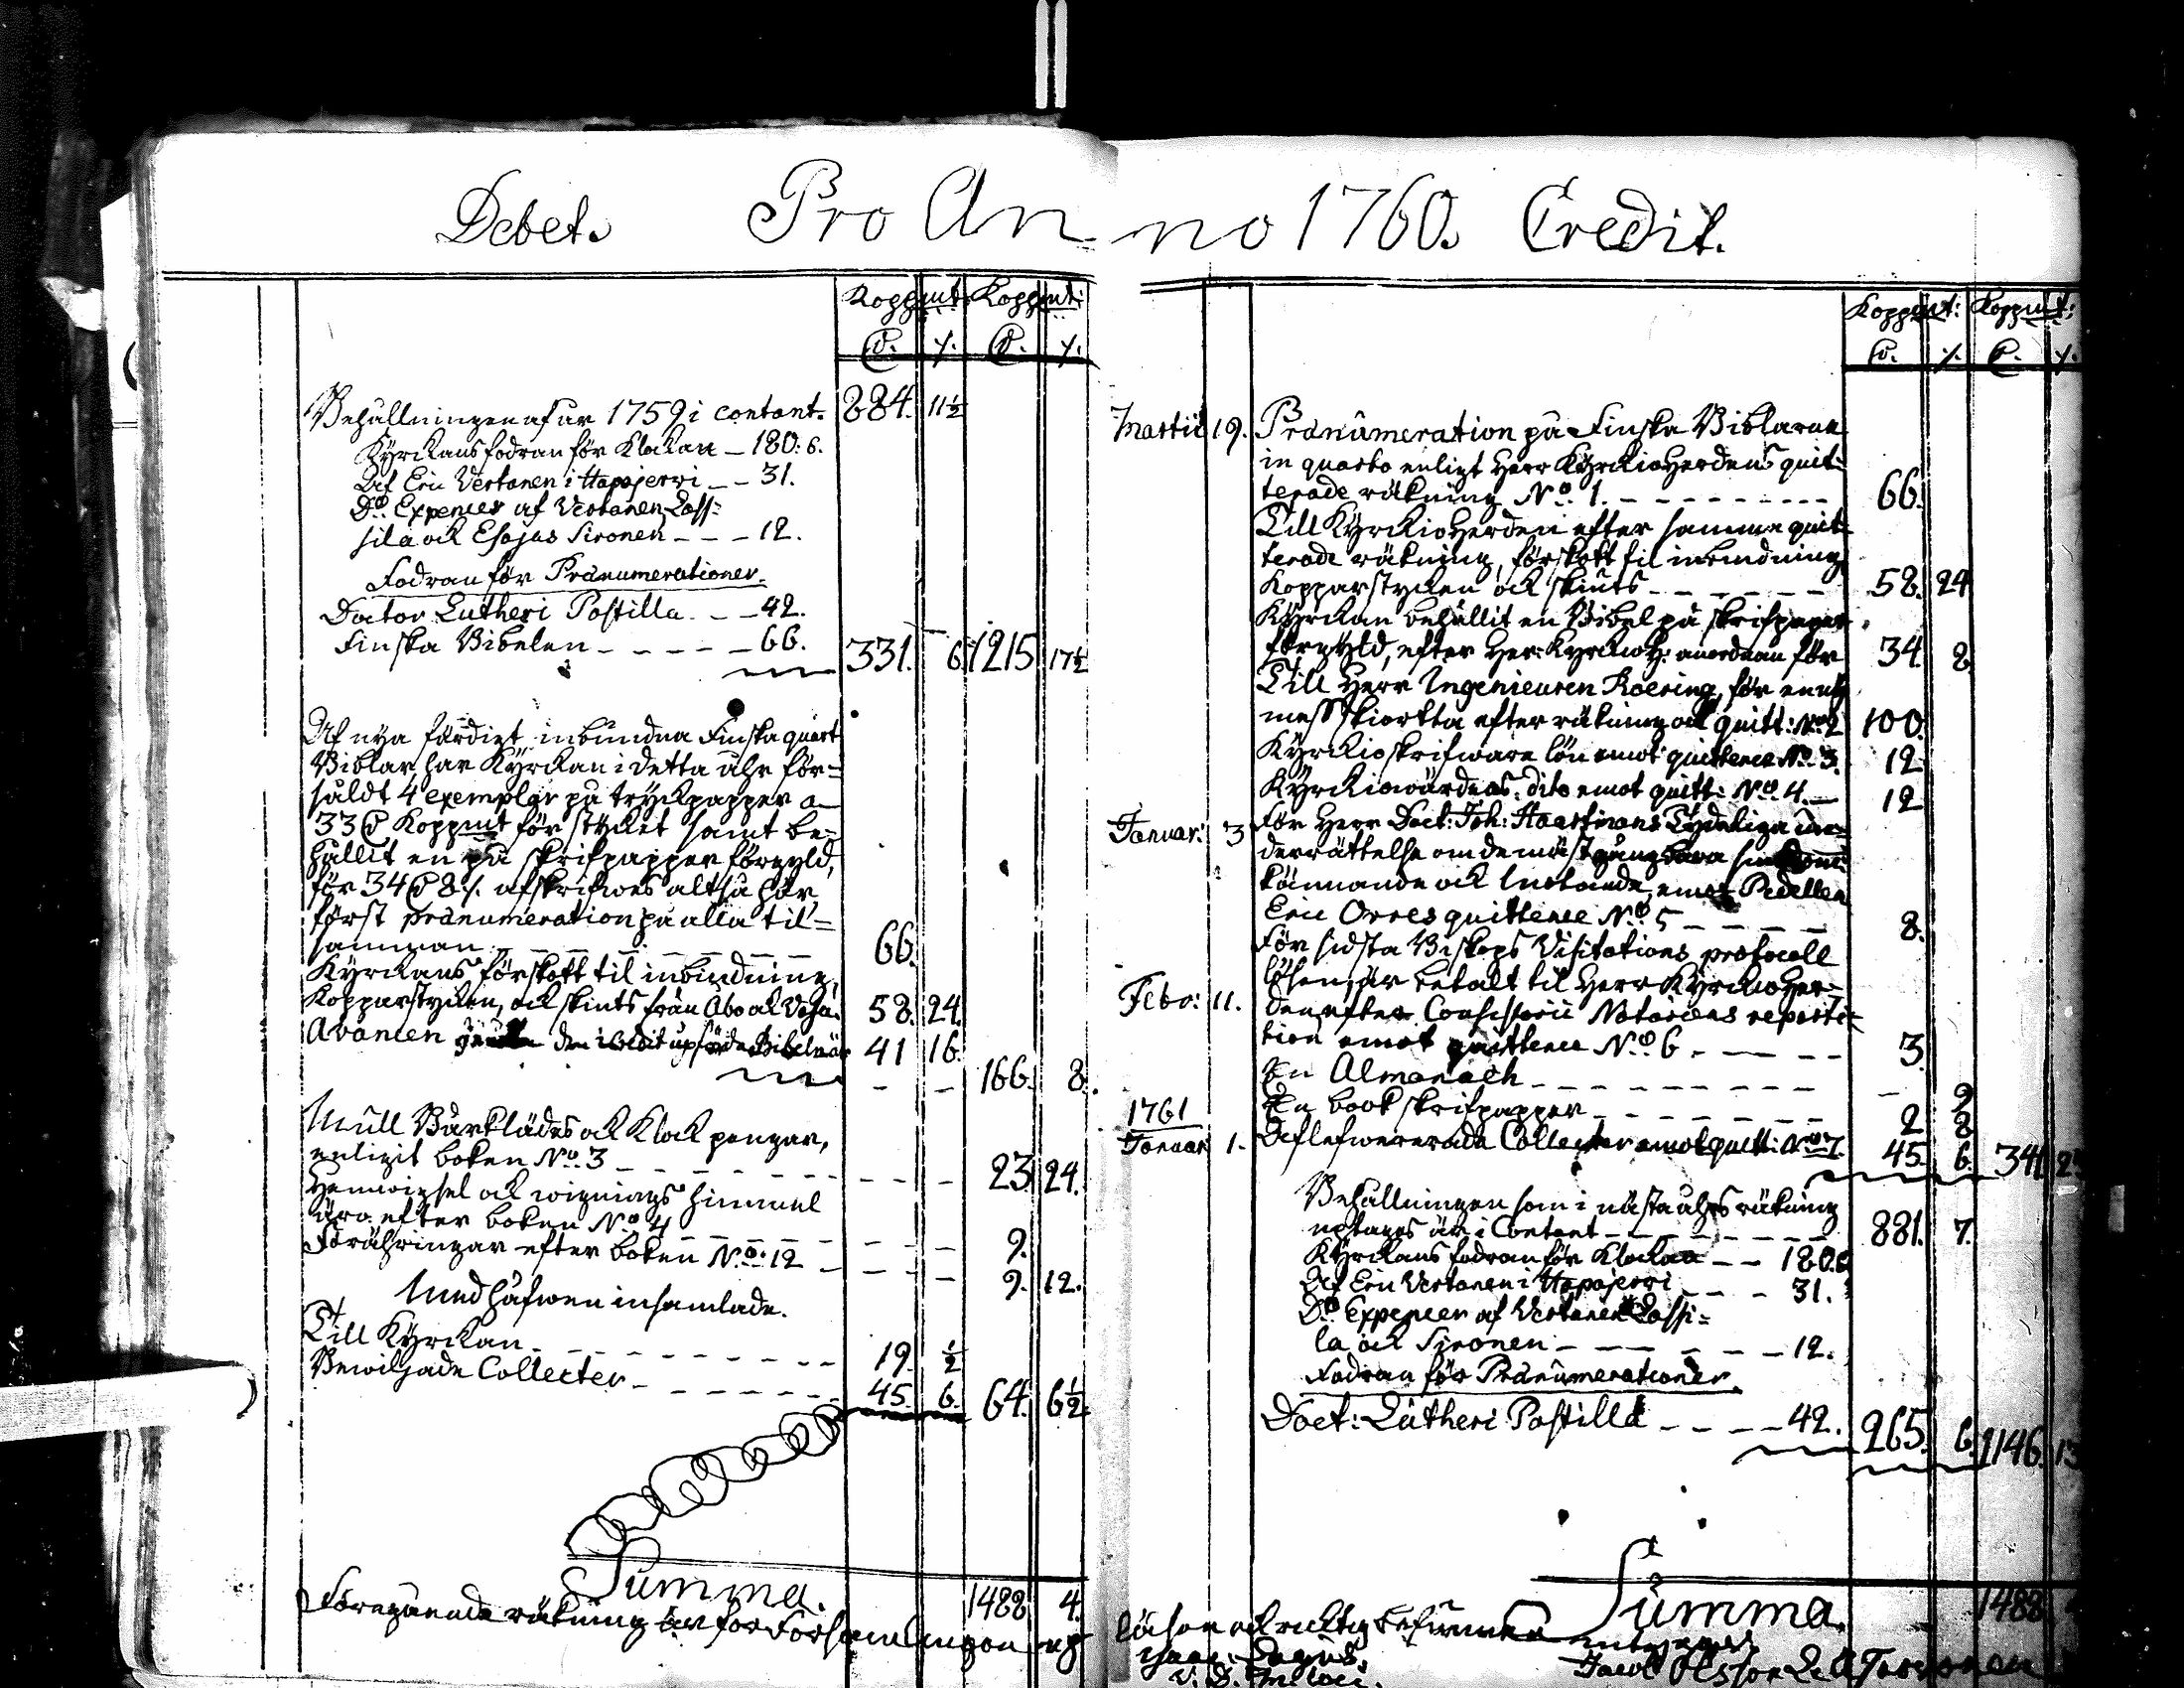 Debet. Pro Anno 1760. Credit.
Koppmt. Koppmt:
D. /. D. /.
Behållningen af år 1759 i contant. 884. 11½
Kyrckans fodran för Klockan — 180: 6.
Af Eric Vertanen i Hapajerwi — 31.
Do. Expencer af Vertanen Lass=
sila och Esajas Sironen — 12.
Fodran för Prænumerationer.
Doctor Lutheri Postilla — 42.
Finska Bibelen — 66. 331. 6. 1215 17½
Af nya färdigt inbundna Finska quart
Biblar, har Kyrckan i detta åhr för=
såldt 4 exemplar på tryckpapper a
33 D Koppmt för stycket samt be=
hållit en på skrifpapper förgyld,
för 34 D 8 /. afskrifwes altså här
först prænumeration på alla til=
samman 66.
Kyrckans förskott til inbindning,
Kopparstycken, och skiuts från Åbo och 58. 24.
Avancen den i Credit upförde Bibeln 41 16.
166. 8.
Mull Bårklädes och Klock pengar,
enligit boken No. 3 23 24.
Hemwigsel och wignings himmel
äro efter boken No. 4 9.
Föräringar efter boken No. 12 9. 12.
Med håfwen insamlade.
Till Kyrckan 19. ½
Bewiljade Collecter 45. 6. 64. 6½
Summa. 1488 4.
Föregående räkning är för Församlingen up
Koppmt: Koppmt:
D. /. D. /.
Martii 19. Prænumeration på Finska Biblarne
in quarto enligt Herr Kyrckioherdens quit=
terade räkning No. 1. 66.
Till Kyrckioherden efter samma quit=
terade räkning, förskott til inbindning
Kopparstycken och skiuts 58. 24
Kyrckan behållit en Bibel på skrifpapper
förgyld, efter Her: Kyrckioh: anordnan för 34 8.
Till Herr Ingenieuren Roering, för en
mess skiorta efter räkning och quitt: No 2 100.
Kyrckioskrifware lön emot quittence No. 3. 12
Kyrckiowärdens dito emot quitt: No. 4. 12
Januar: 3 För Herr Doct: Joh: Haartmans Tydeliga un=
derrättelse om de mäst gångbara
kännande och Motande, emot Pedellen
Eric Orres quittence No. 5 8.
För sidsta Biskops Visitations protocoll
Febr: 11. lösen, är betalt til Herr Kyrckioher=
den, efter Consistorii Notariens reparti=
tion emot quittence No. 6 3.
En Almanach — 9
En book skrifpapper 2 8
1761
Januar 1. Aflefwererade Collecter emot quitt: No 7. 45. 6. 341.
Behållningen som i nästa åhrs räkning
uptages är i Contant 881. 7.
Kyrckans fodran för Klockan — 180. 6
Af Eric Vertanen i Hapajerwi — 31.
Do Expencer af Vertanen Lassi=
la och Sironen — 12.
Fodran för Prænumerationer.
Doct: Lutheri Postilla — 42. 265. 6. 1146. 13
Summa. 1488
läsen och richtig befunnen
Jacob Olsson